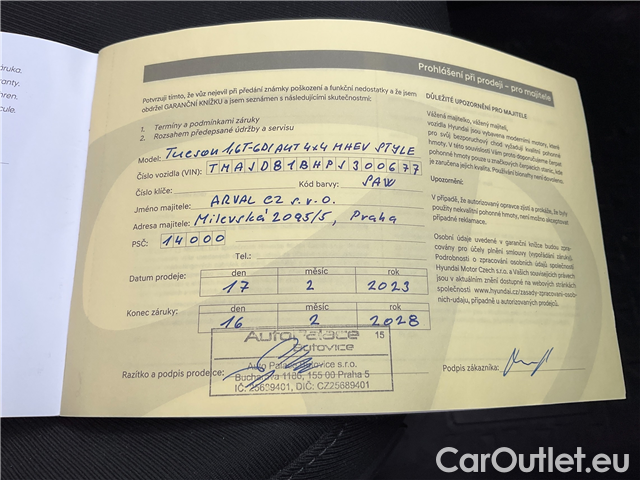 áruka.
ranty.
hren.
cule.
Prohlášení při prodeji – pro majitele
Potvrzuji tímto, že vůz nejevil při předání známky poškození a funkční nedostatky a že jsem
obdržel GARANČNÍ KNÍŽKU a jsem seznámen s následujícími skutečnostmi:
1. Termíny a podmínkami záruky
2. Rozsahem předepsané údržby a servisu
Model: Tucson 1,6T-GDI AUT 4x4 MHEV STYLE
Číslo vozidla (VIN): TMAJD81BHPJ300677
Číslo klíče: Kód barvy: SAW
Jméno majitele: ARVAL CZ s.r.o.
Adresa majitele: Milevská 2095/5, Praha
PSČ: 14000
Tel.:
den měsíc rok
Datum prodeje: 17 2 2023
den měsíc rok
Konec záruky: 16 2 2028
Auto Palace 15
Butovice
Auto Palace Butovice s.r.o.
Bucharova 1186, 155 00 Praha 5
IČ: 25689401, DIČ: CZ25689401
Razítko a podpis prodejce:
DŮLEŽITÉ UPOZORNĚNÍ PRO MAJITELE
Vážená majitelko, vážený majiteli,
vozidla Hyundai jsou vybavena moderními motory, které
pro svůj bezporuchový chod vyžadují kvalitní pohonné
hmoty. V této souvislosti Vám proto doporučujeme čerpat
pohonné hmoty pouze u značkových čerpacích stanic, kde
je zaručena jejich kvalita. Používání bionafty není dovoleno.
Upozornění:
V případě, že autorizovaný opravce zjistí a prokáže, že byly
použity nekvalitní pohonné hmoty, nemusí být akceptovány
případné reklamace.
Osobní údaje uvedené v garanční knížce budou zpra-
covány pro účely plnění smlouvy (vypořádání záruky).
Podrobnosti o zpracování osobních údajů společností
Hyundai Motor Czech s.r.o. a Vašich souvisejících právech
jsou v aktuálním znění dostupné na webových stránkách
společnosti www.hyundai.cz/zasady-zpracovani-osob-
nich-udaju, případně u autorizovaných prodejců.
Podpis zákazníka:
CarOutlet.eu